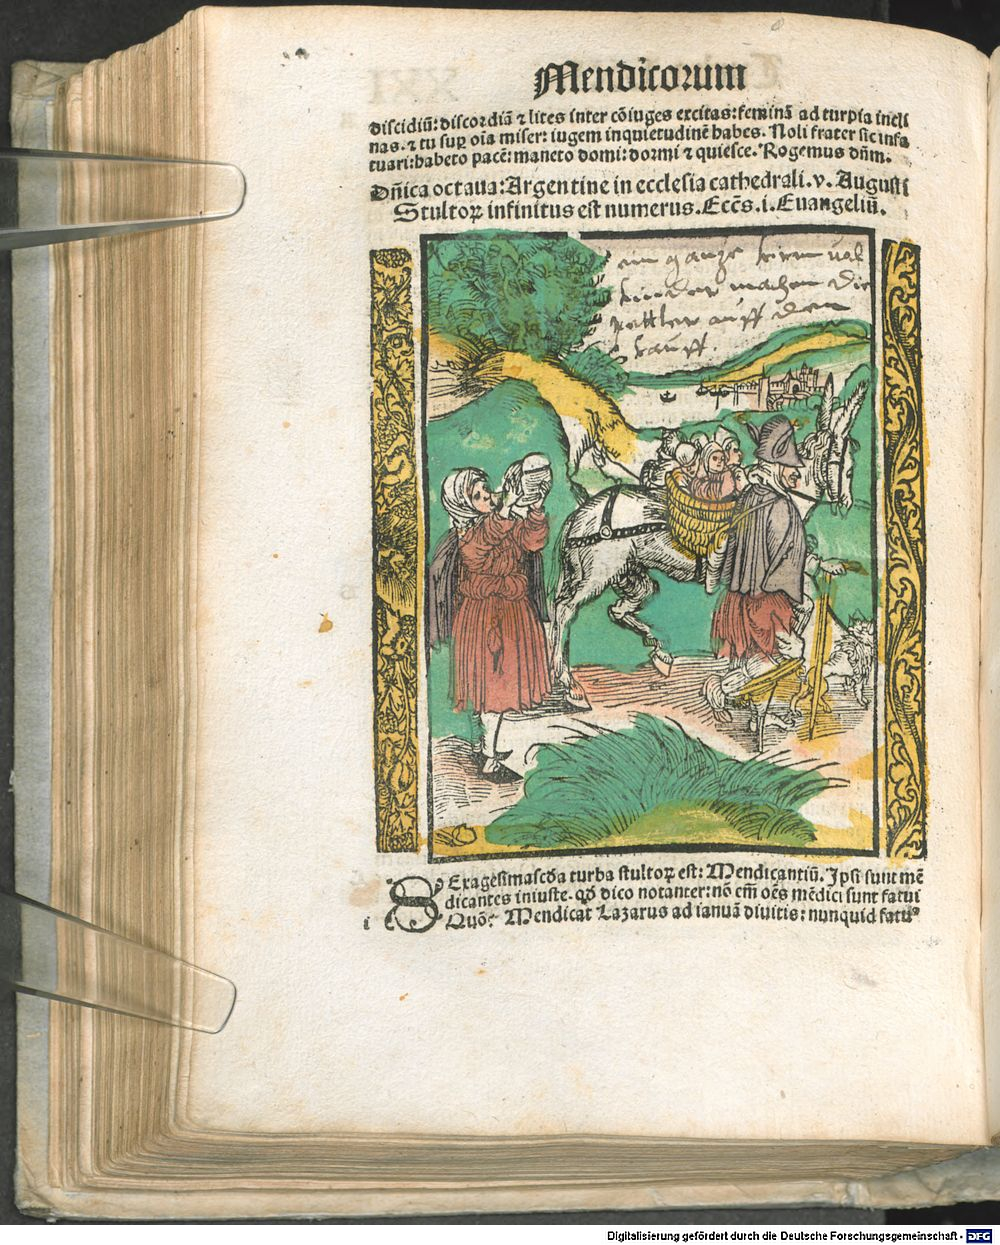 Mendicorum
discidiũ: discordiã ⁊ lites inter cõiuges excitas: feminã ad turpia incli
nas. ⁊ tu suꝑ oĩa miser: iugem inquietudinẽ habes. Noli frater sic infa
tuari: habeto pacẽ: maneto domi: dormi ⁊ quiesce. Rogemus dñm.
Dñica octaua: Argentine in ecclesia cathedrali. v. Augusti
Stultoꝝ infinitus est numerus. Eccẽs. i. Euangeliũ.
ein gantze vol
kinder machen die
pettler auff den
kauff.
SExagesimatcĩa turba stultoꝝ est: Mendicantiũ. Ipsi sunt mẽ
dicantes iniuste. qđ dico notanter: nõ em̃ oẽs mẽdici sunt fatui
i Quõ: Mendicat Lazarus ad ianuã diuitis: nunquid fatuꝰ
Digitalisierung gefördert durch die Deutsche Forschungsgemeinschaft - DFG